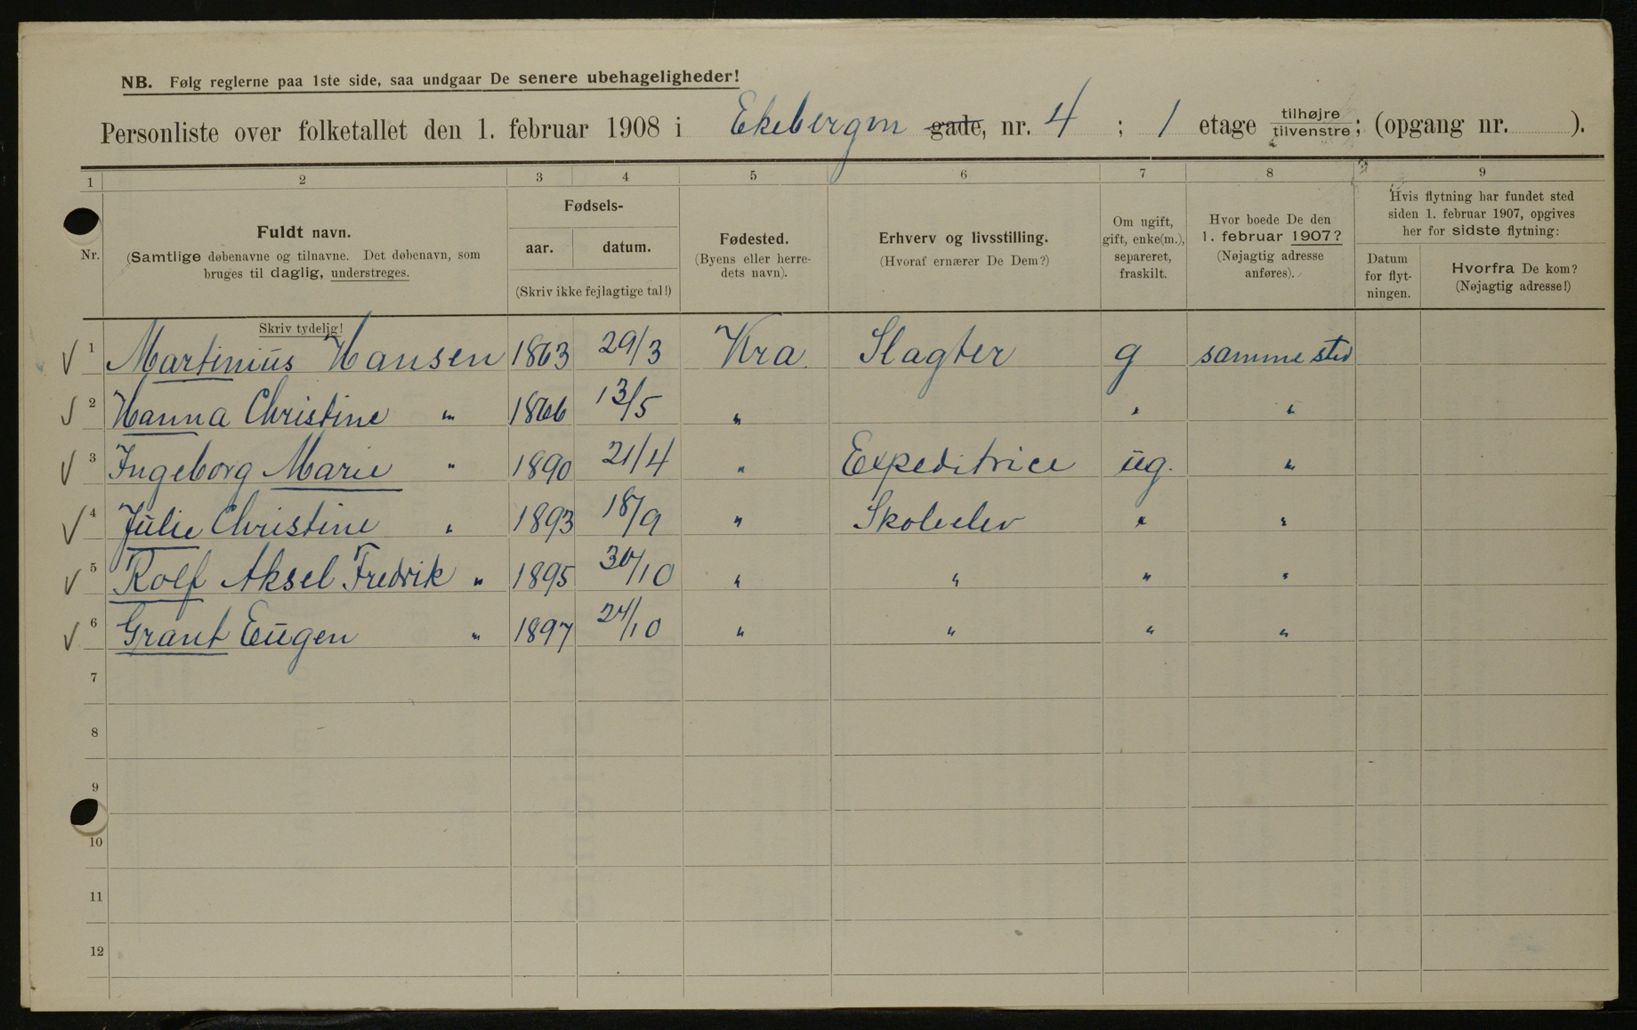 NB. Følg reglerne paa 1ste side, saa undgaar De senere ubehageligheder!
Personliste over folketallet den 1. februar 1908 i Ekebergvn gade, nr. 4 ; 1 etage tilhøjre tilvenstre; (opgang nr. ).
1 2 3 4 5 6 7 8 9
Nr.
Fuldt navn.
(Samtlige døbenavne og tilnavne. Det døbenavn, som
bruges til daglig, understreges.
Skriv tydelig!
Fødsels-
aar. datum.
(Skriv ikke fejlagtige tal!)
Fødested.
(Byens eller herre-
dets navn).
Erhverv og livsstilling.
(Hvoraf ernærer De Dem?)
Om ugift,
gift, enke(m.),
separeret,
fraskilt.
Hvor boede De den
1. februar 1907?
(Nøjagtig adresse
anføres).
Hvis flytning har fundet sted
siden 1. februar 1907, opgives
her for sidste flytning:
Datum
for flyt-
ningen.
Hvorfra De kom?
(Nøjagtig adresse!)
1 Martinius Hansen 1863 29/3 Kra. Slagter g samme sted
2 Hanna Christine " 1866 13/5 " " "
3 Ingeborg Marie " 1890 21/4 " Expeditrice ug. "
4 Julie Christine " 1893 18/9 " Skoleelev " "
5 Rolf Aksel Fredrik " 1895 30/10 " " " "
6 Grant Eugen " 1897 24/10 " " " "
7
8
9
10
11
12